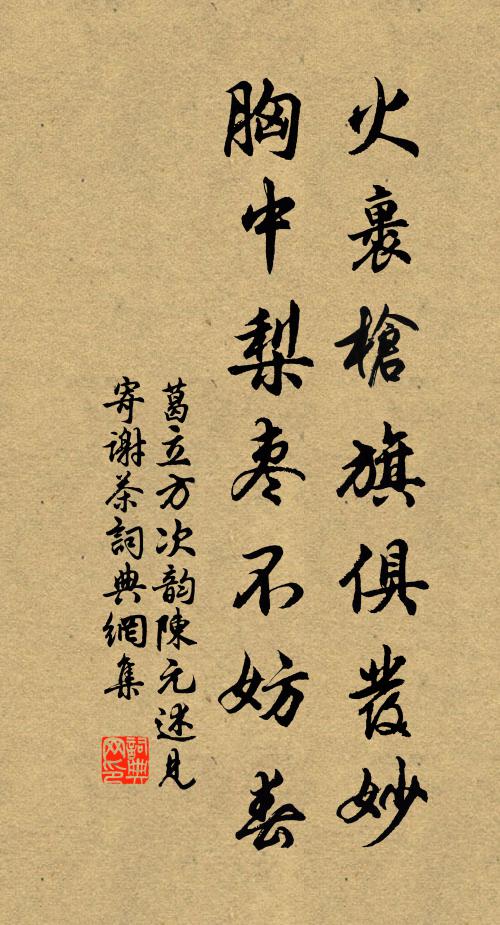 火裏槍旗俱發妙
胸中梨枣不妨春
葛立方次韵陳元述見
寄謝茶詞典網集
詞典
网印